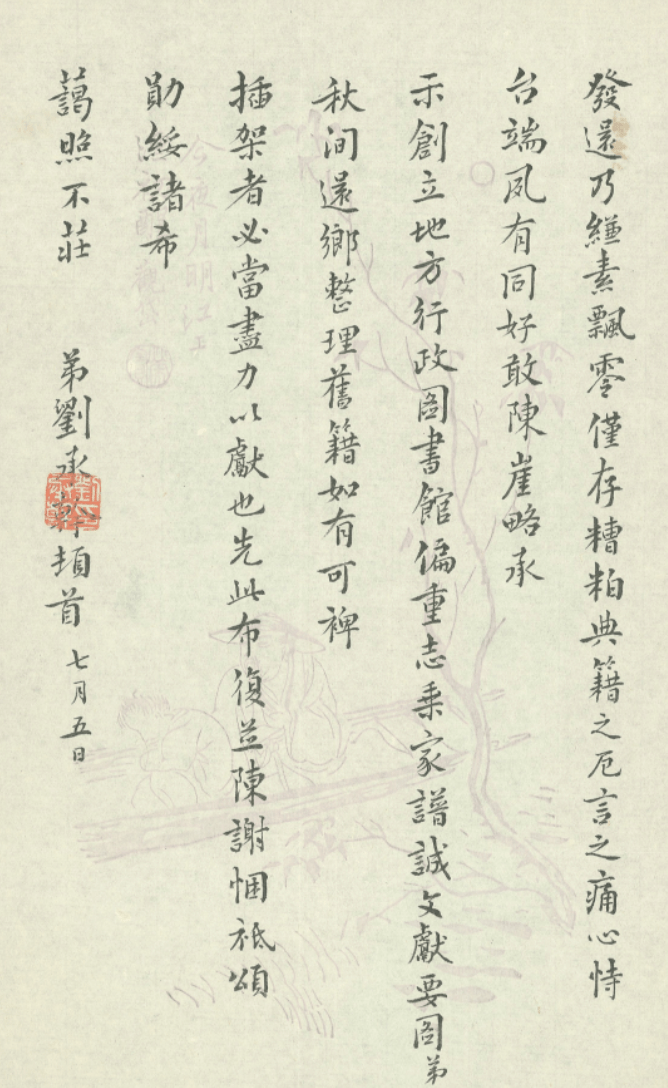 發還乃縑素飄零僅存糟粕典籍之厄言之痛心恃
台端夙有同好敢陳崖略承
示創立地方行政圖書館偏重志乘家譜誠文獻要圖弟
秋間還鄉整理舊籍如有可裨
插架者必當盡力以獻也先此布復並陳謝悃祗頌
勛綏諸希
藹照不莊
弟劉承幹頓首 七月五日
今夜月明江上